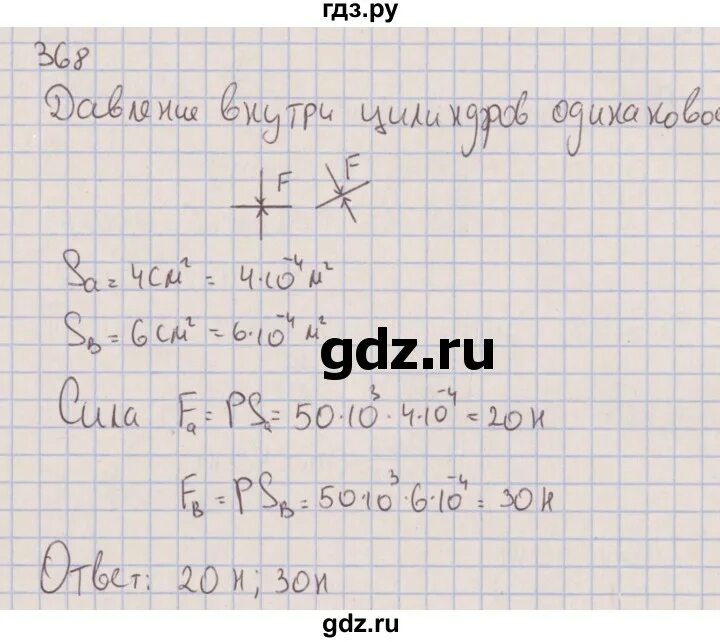 гдз.ру
368
Давление внутри цилиндров одинаковое
F F
Sa = 4см² = 4·10⁻⁴ м²
SB = 6см² = 6·10⁻⁴ м²
gdz.ru
Сила Fa = PSa = 50·10³·4·10⁻⁴ = 20 Н
FB = PSB = 50·10³·6·10⁻⁴ = 30 Н
Ответ: 20 н; 30 н
gdz.ru